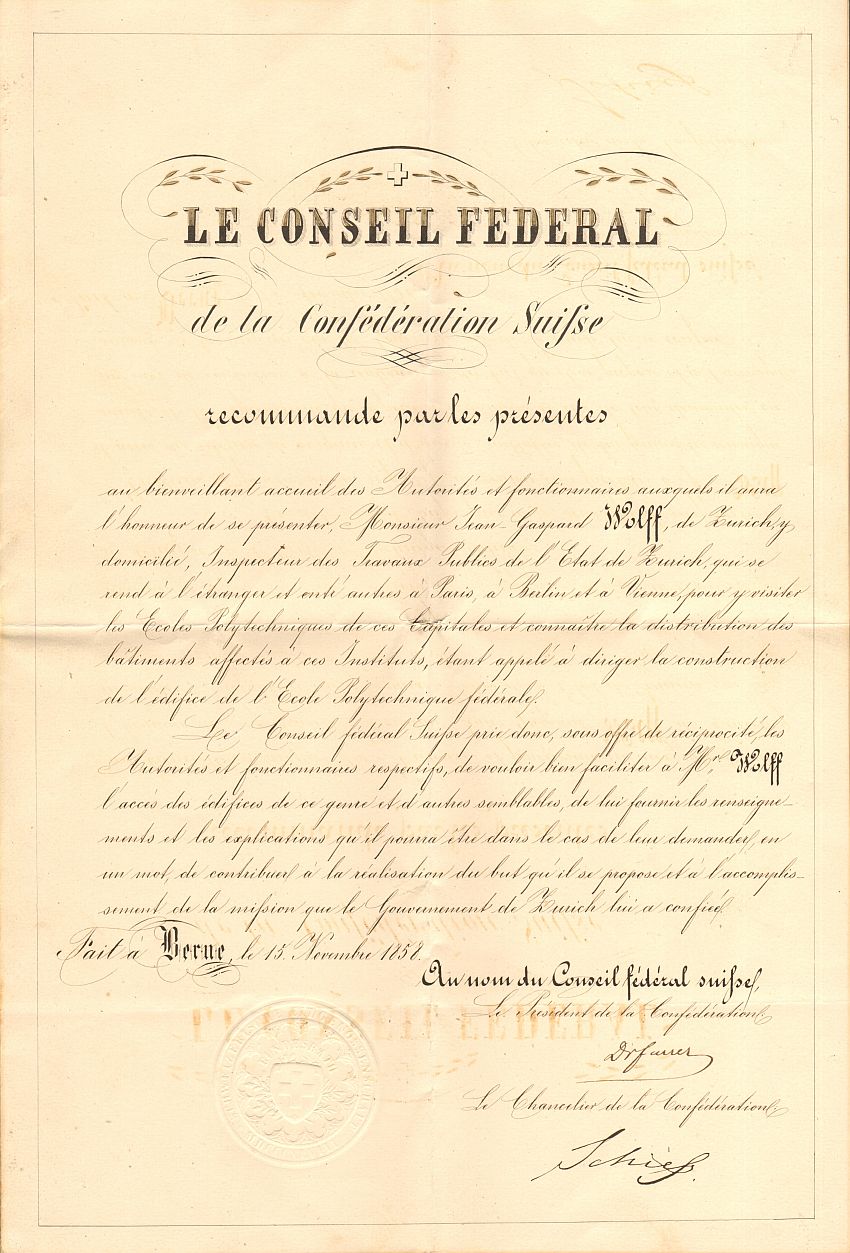 LE CONSEIL FEDERAL
de la Confédération Suisse
recommande par les présentes
au bienveillant accueil des Autorités et fonctionnaires auxquels il aura
l'honneur de se présenter, Monsieur Jean-Gaspard Wolff, de Zurich, y
domicilié, Inspecteur des Travaux Publics de l'Etat de Zurich, qui se
rend à l'étranger et entr'autres à Paris, à Berlin et à Vienne, pour y visiter
les Ecoles Polytechniques de ces Capitales et connaître la distribution des
bâtiments affectés à ces Instituts, étant appelé à diriger la construction
de l'édifice de l'Ecole Polytechnique fédérale.
Le Conseil fédéral Suisse prie donc, sous offre de réciprocité, les
Autorités et fonctionnaires respectifs, de vouloir bien faciliter à Mr. Wolff
l'accès des édifices de ce genre et d'autres semblables, de lui fournir les renseigne-
ments et les explications qu'il pourra être dans le cas de leur demander, en
un mot, de contribuer à la réalisation du but qu'il se propose et à l'accomplis-
sement de la mission que le Gouvernement de Zurich lui a confiée.
Fait à Berne, le 15 Novembre 1858.
Au nom du Conseil fédéral suisse,
Le Président de la Confédération,
Dr Furrer
Le Chancelier de la Confédération,
Schieß.